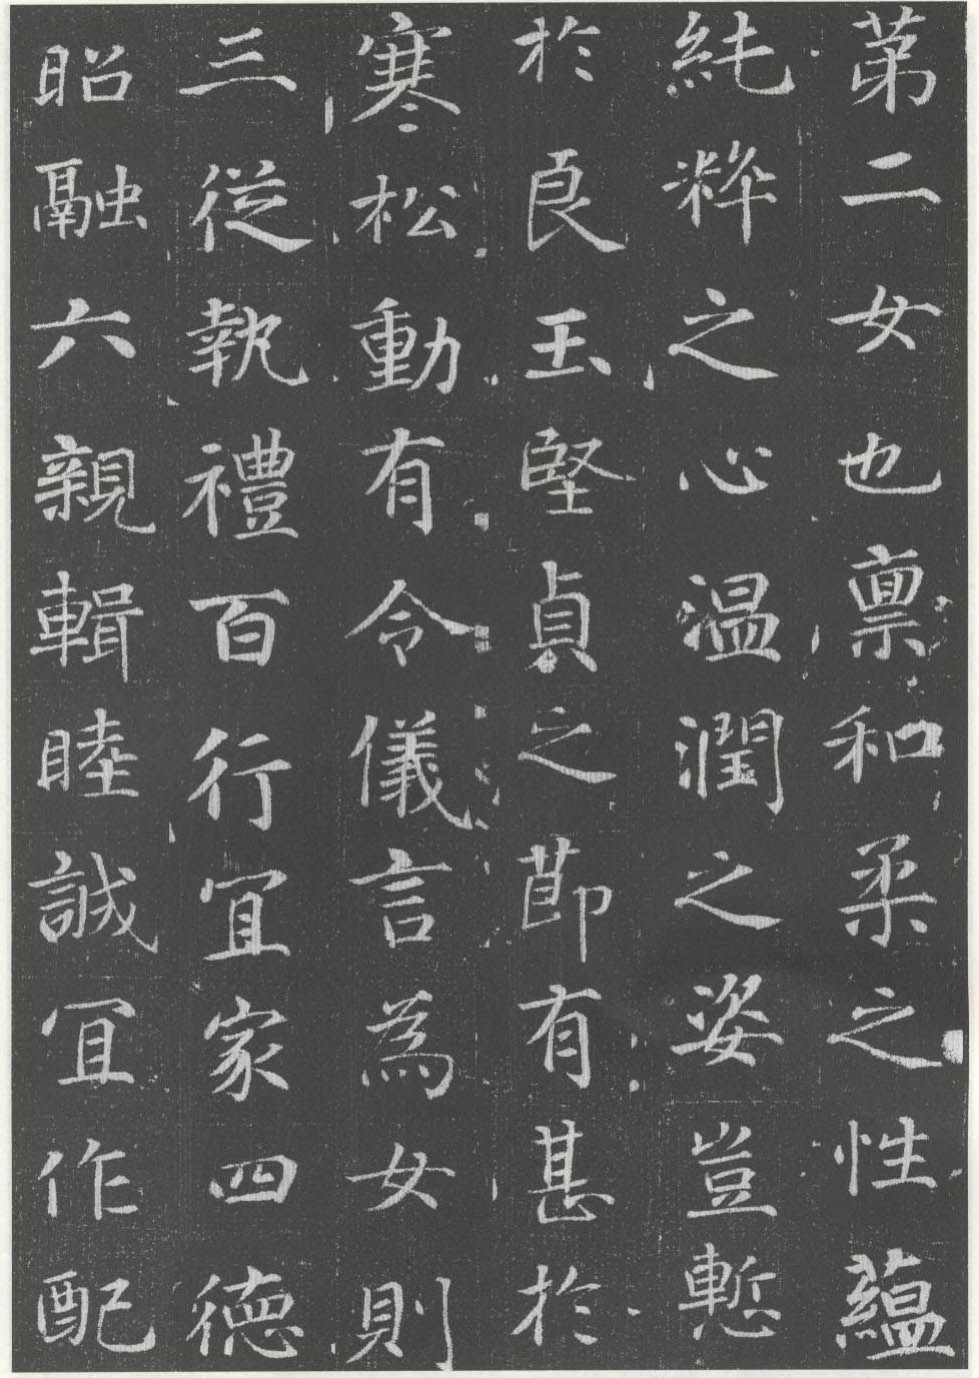 苐二女也禀和柔之性藴
純粹之心温潤之姿豈慙
於良玉堅貞之莭有甚於
寒松動有令儀言為女則
三從執禮百行冝家四德
昭融六親輯睦誠冝作配